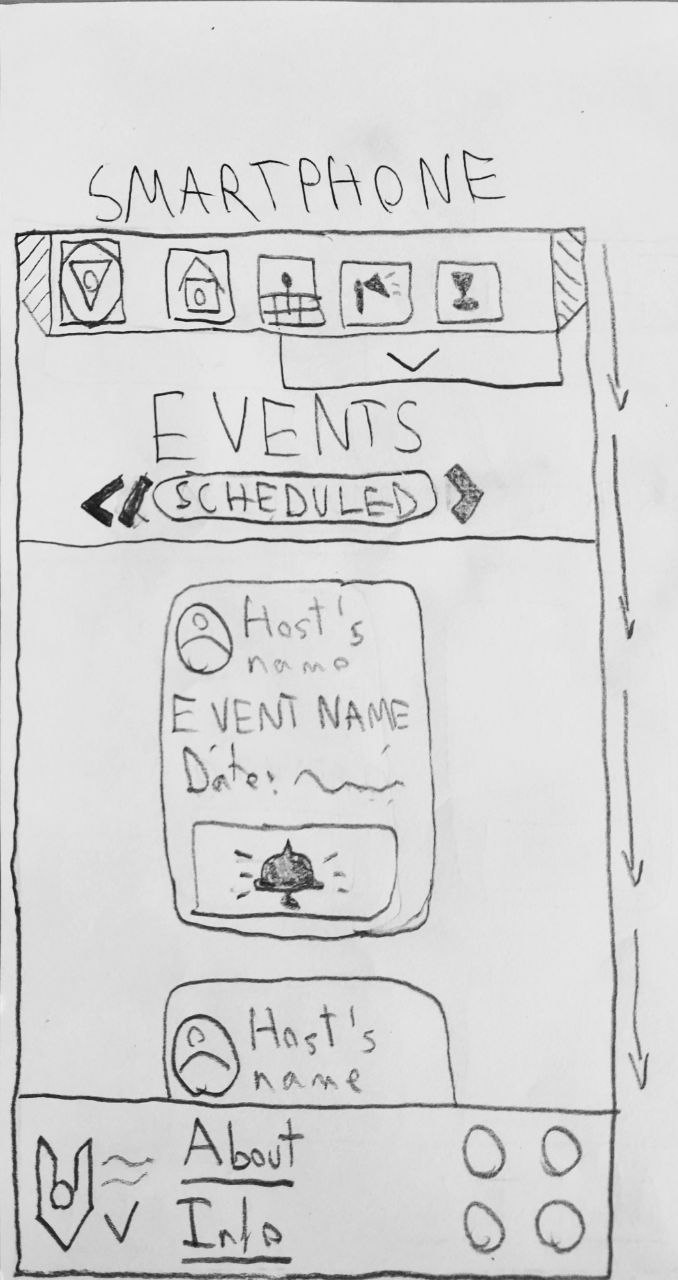 SMARTPHONE
EVENTS
SCHEDULED
Host's
name
EVENT NAME
Date:
Host's
name
About
Info